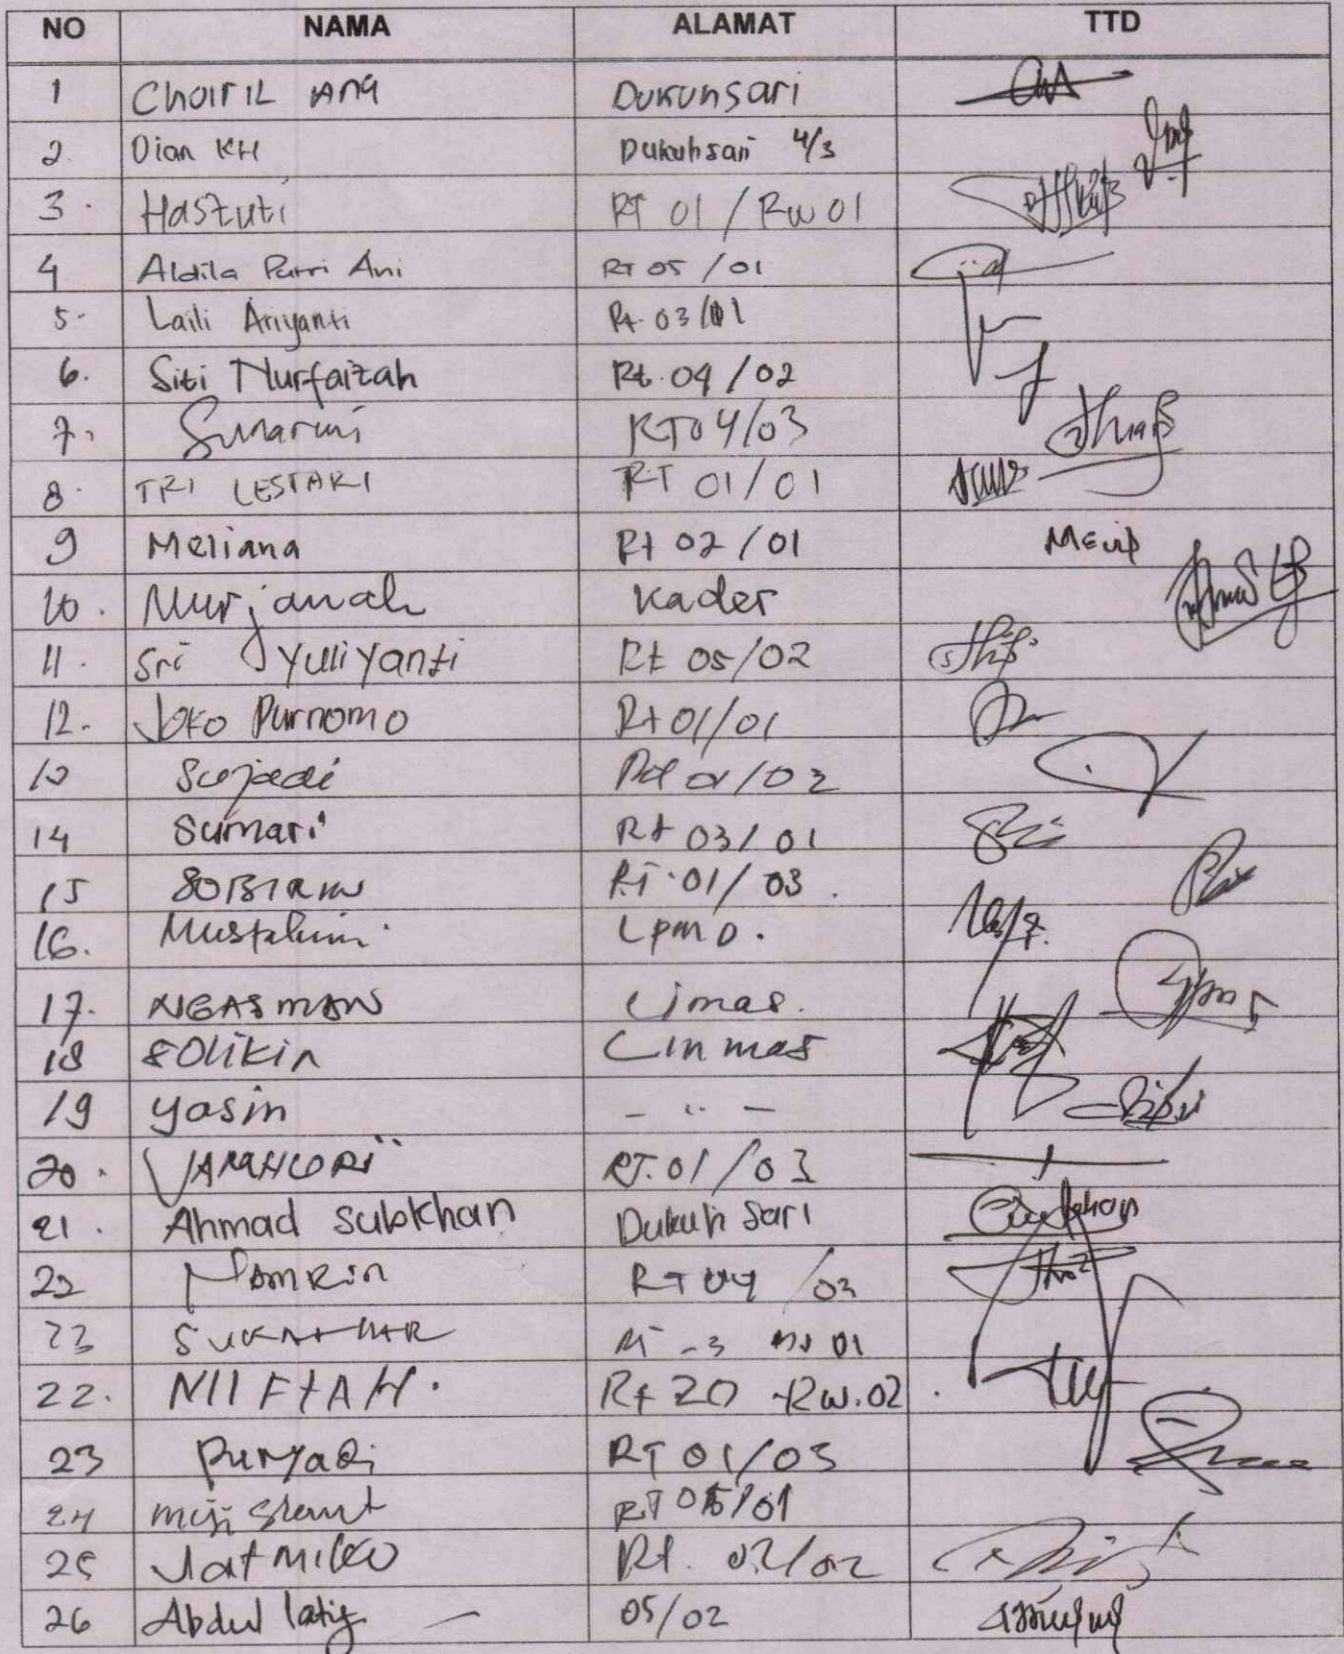 NO NAMA ALAMAT TTD
1 Choiril Ana Dukuhsari
2. Dian KH Dukuhsari 4/3
3. Hastuti RT 01 / Rw 01
4 Aldila Putri Ani RT 05 / 01
5. Laili Ariyanti Rt. 03/01
6. Siti Nurfaizah Rt. 04 / 02
7. Sunarmi RT 04/03
8. TRI LESTARI RT 01/01
9 Meliana Rt 02 / 01
10. Nurjanah Kader
11. Sri Yuliyanti Rt 05/02
12. Joko Purnomo Rt 01/01
13 Sujadi Rt 01/02
14 Sumari Rt 03/01
15 SOBIRIN RT 01/03.
16. Mustakim. LPMD.
17. NGASMAN Limas.
18 SOLIKIN Linmas
19 Yasin - " -
20. RT. 01/03
21. Ahmad Subkhan Dukuh Sari
22 RT 04 /03
23 01
22. MIFTAH. Rt 20 Rw. 02
23 Puryadi RT 01/03
24 RT 05/01
25 Jatmiko Rt. 02/02
26 Abdul latif - 05/02